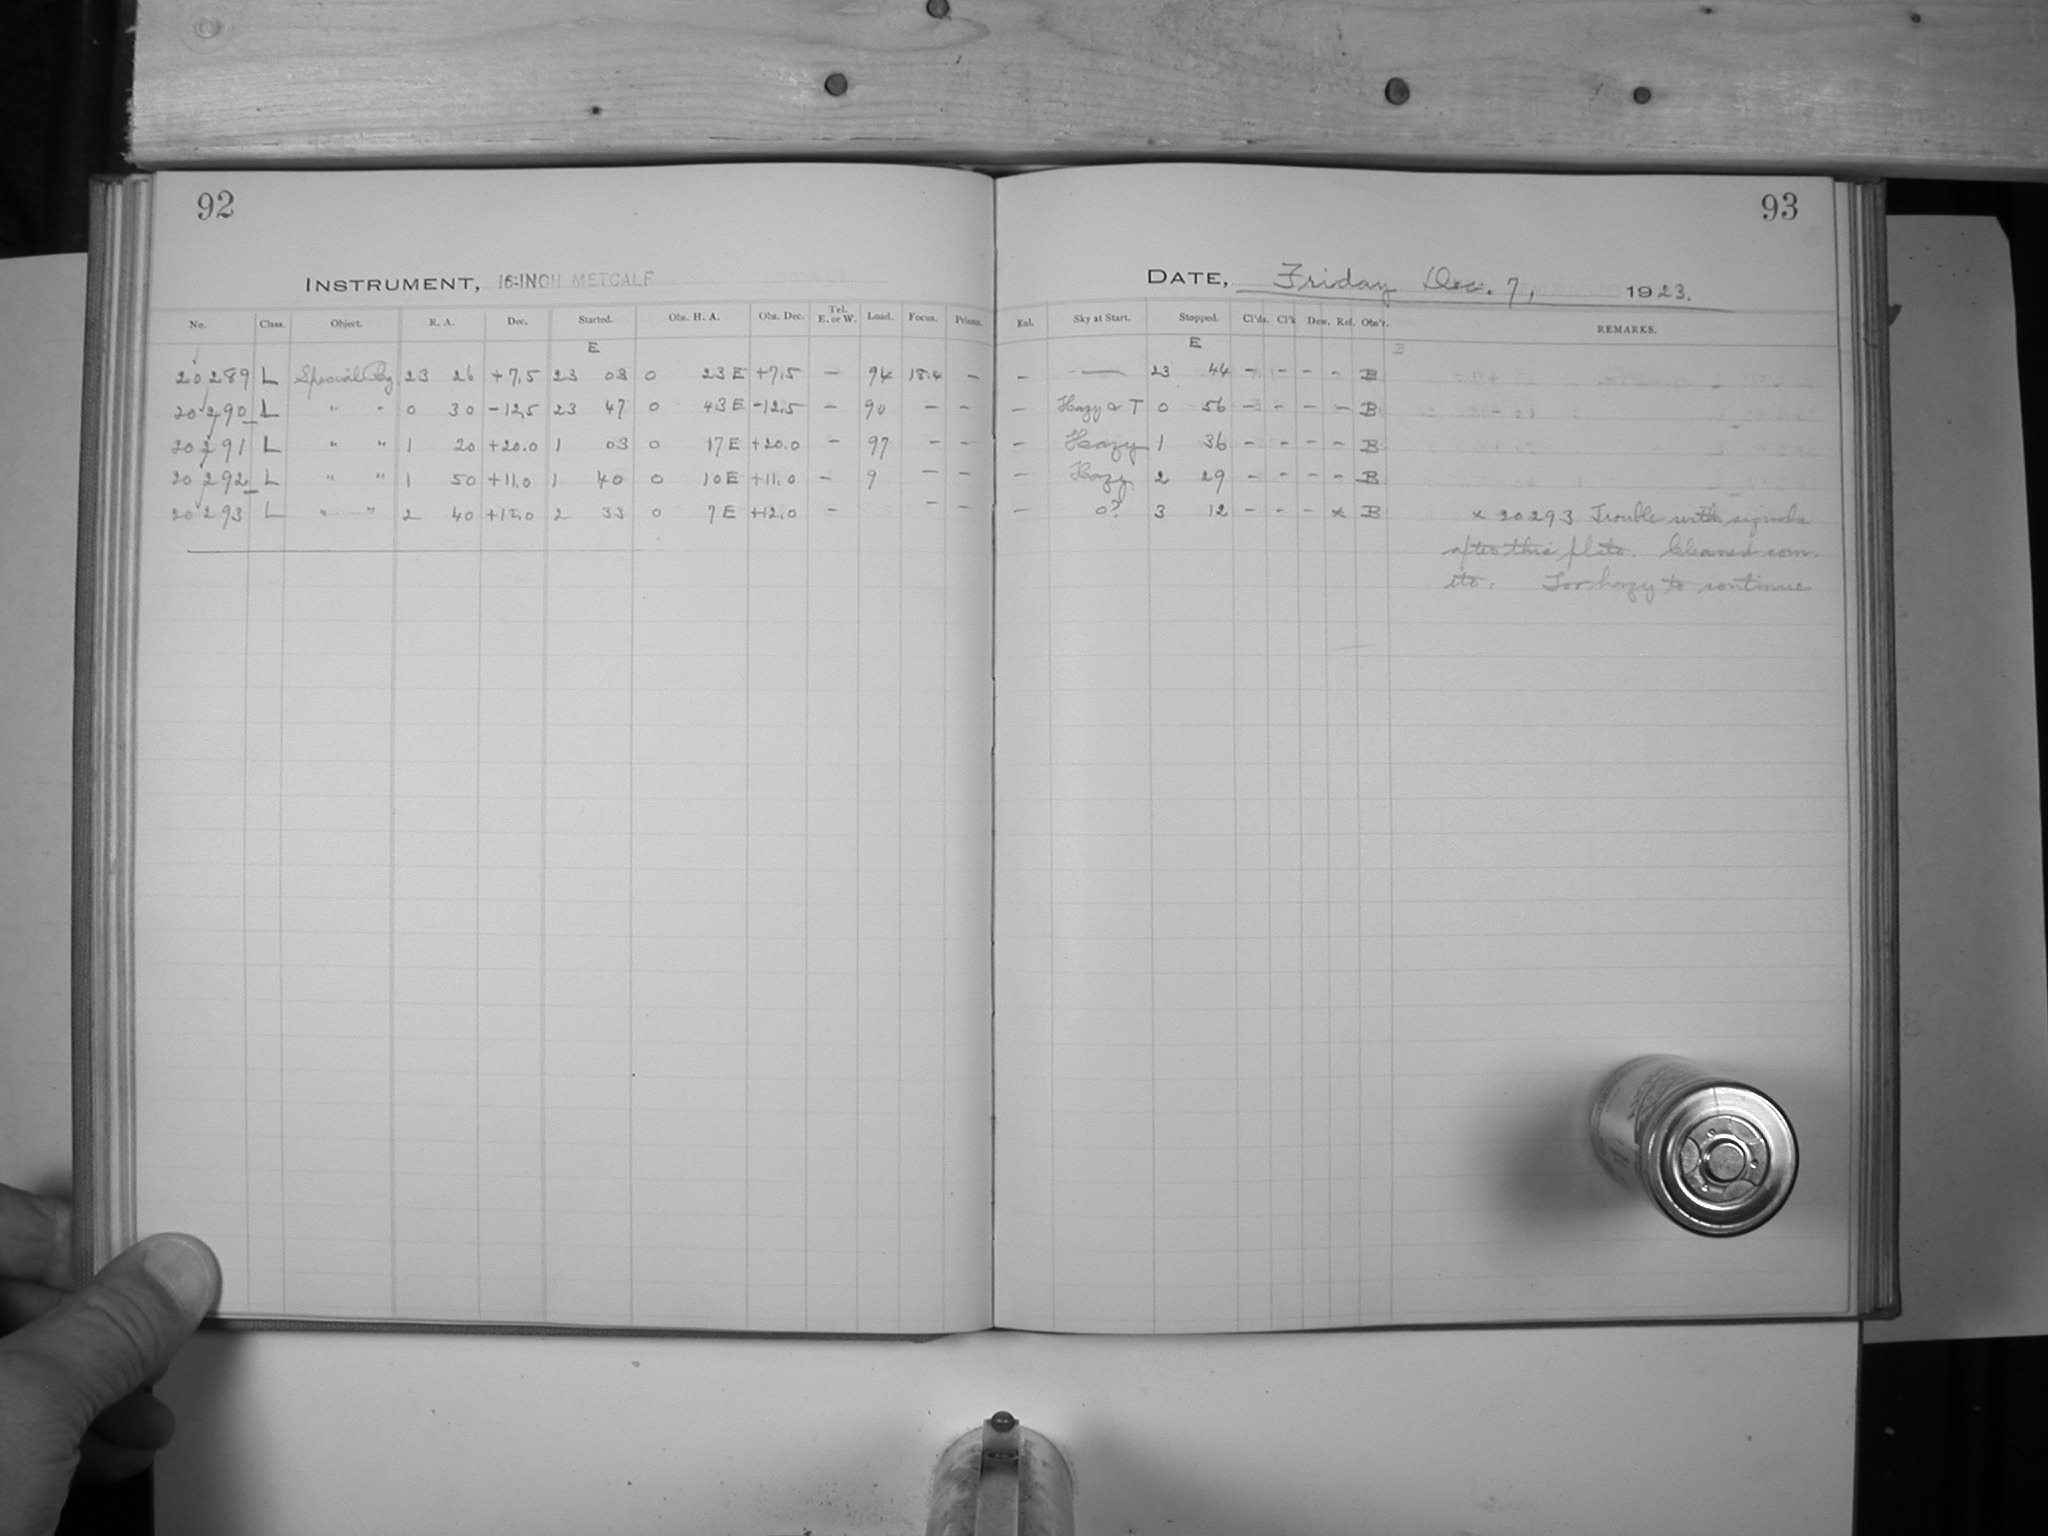 92
93
INSTRUMENT, 16-INCH METCALF
DATE, Friday Dec. 7, 1923.
No. Class. Object. R. A. Dec. Started. Obs. H. A. Obs. Dec. Tel. E. or W. Load. Focus. Prisms. Eal. Sky at Start. Stopped. Cl'ds. Cl'k Dew. Ref. Obs'r. REMARKS.
E E
20289 L Special Reg 23 26 +7.5 23 03 0 23 E +7.5 – 94 18.4 – – — 23 44 – – – – B
20290 L " " 0 30 –12.5 23 47 0 43 E –12.5 – 90 – – – Hazy & T 0 56 – – – – B
20291 L " " 1 20 +20.0 1 03 0 17 E +20.0 – 97 – – – Hazy 1 36 – – – – B
20292 L " " 1 50 +11.0 1 40 0 10 E +11.0 – 9 – – – Hazy 2 29 – – – – B
20293 L " " 2 40 +12.0 2 33 0 7 E +12.0 – – – – 0? 3 12 – – – x B x 20293 Trouble with signals
after this plate. Cleaned com.
etc. Too hazy to continue